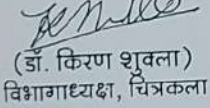 (डॉ. किरण शुक्ला)
विभागाध्यक्ष, चित्रकला